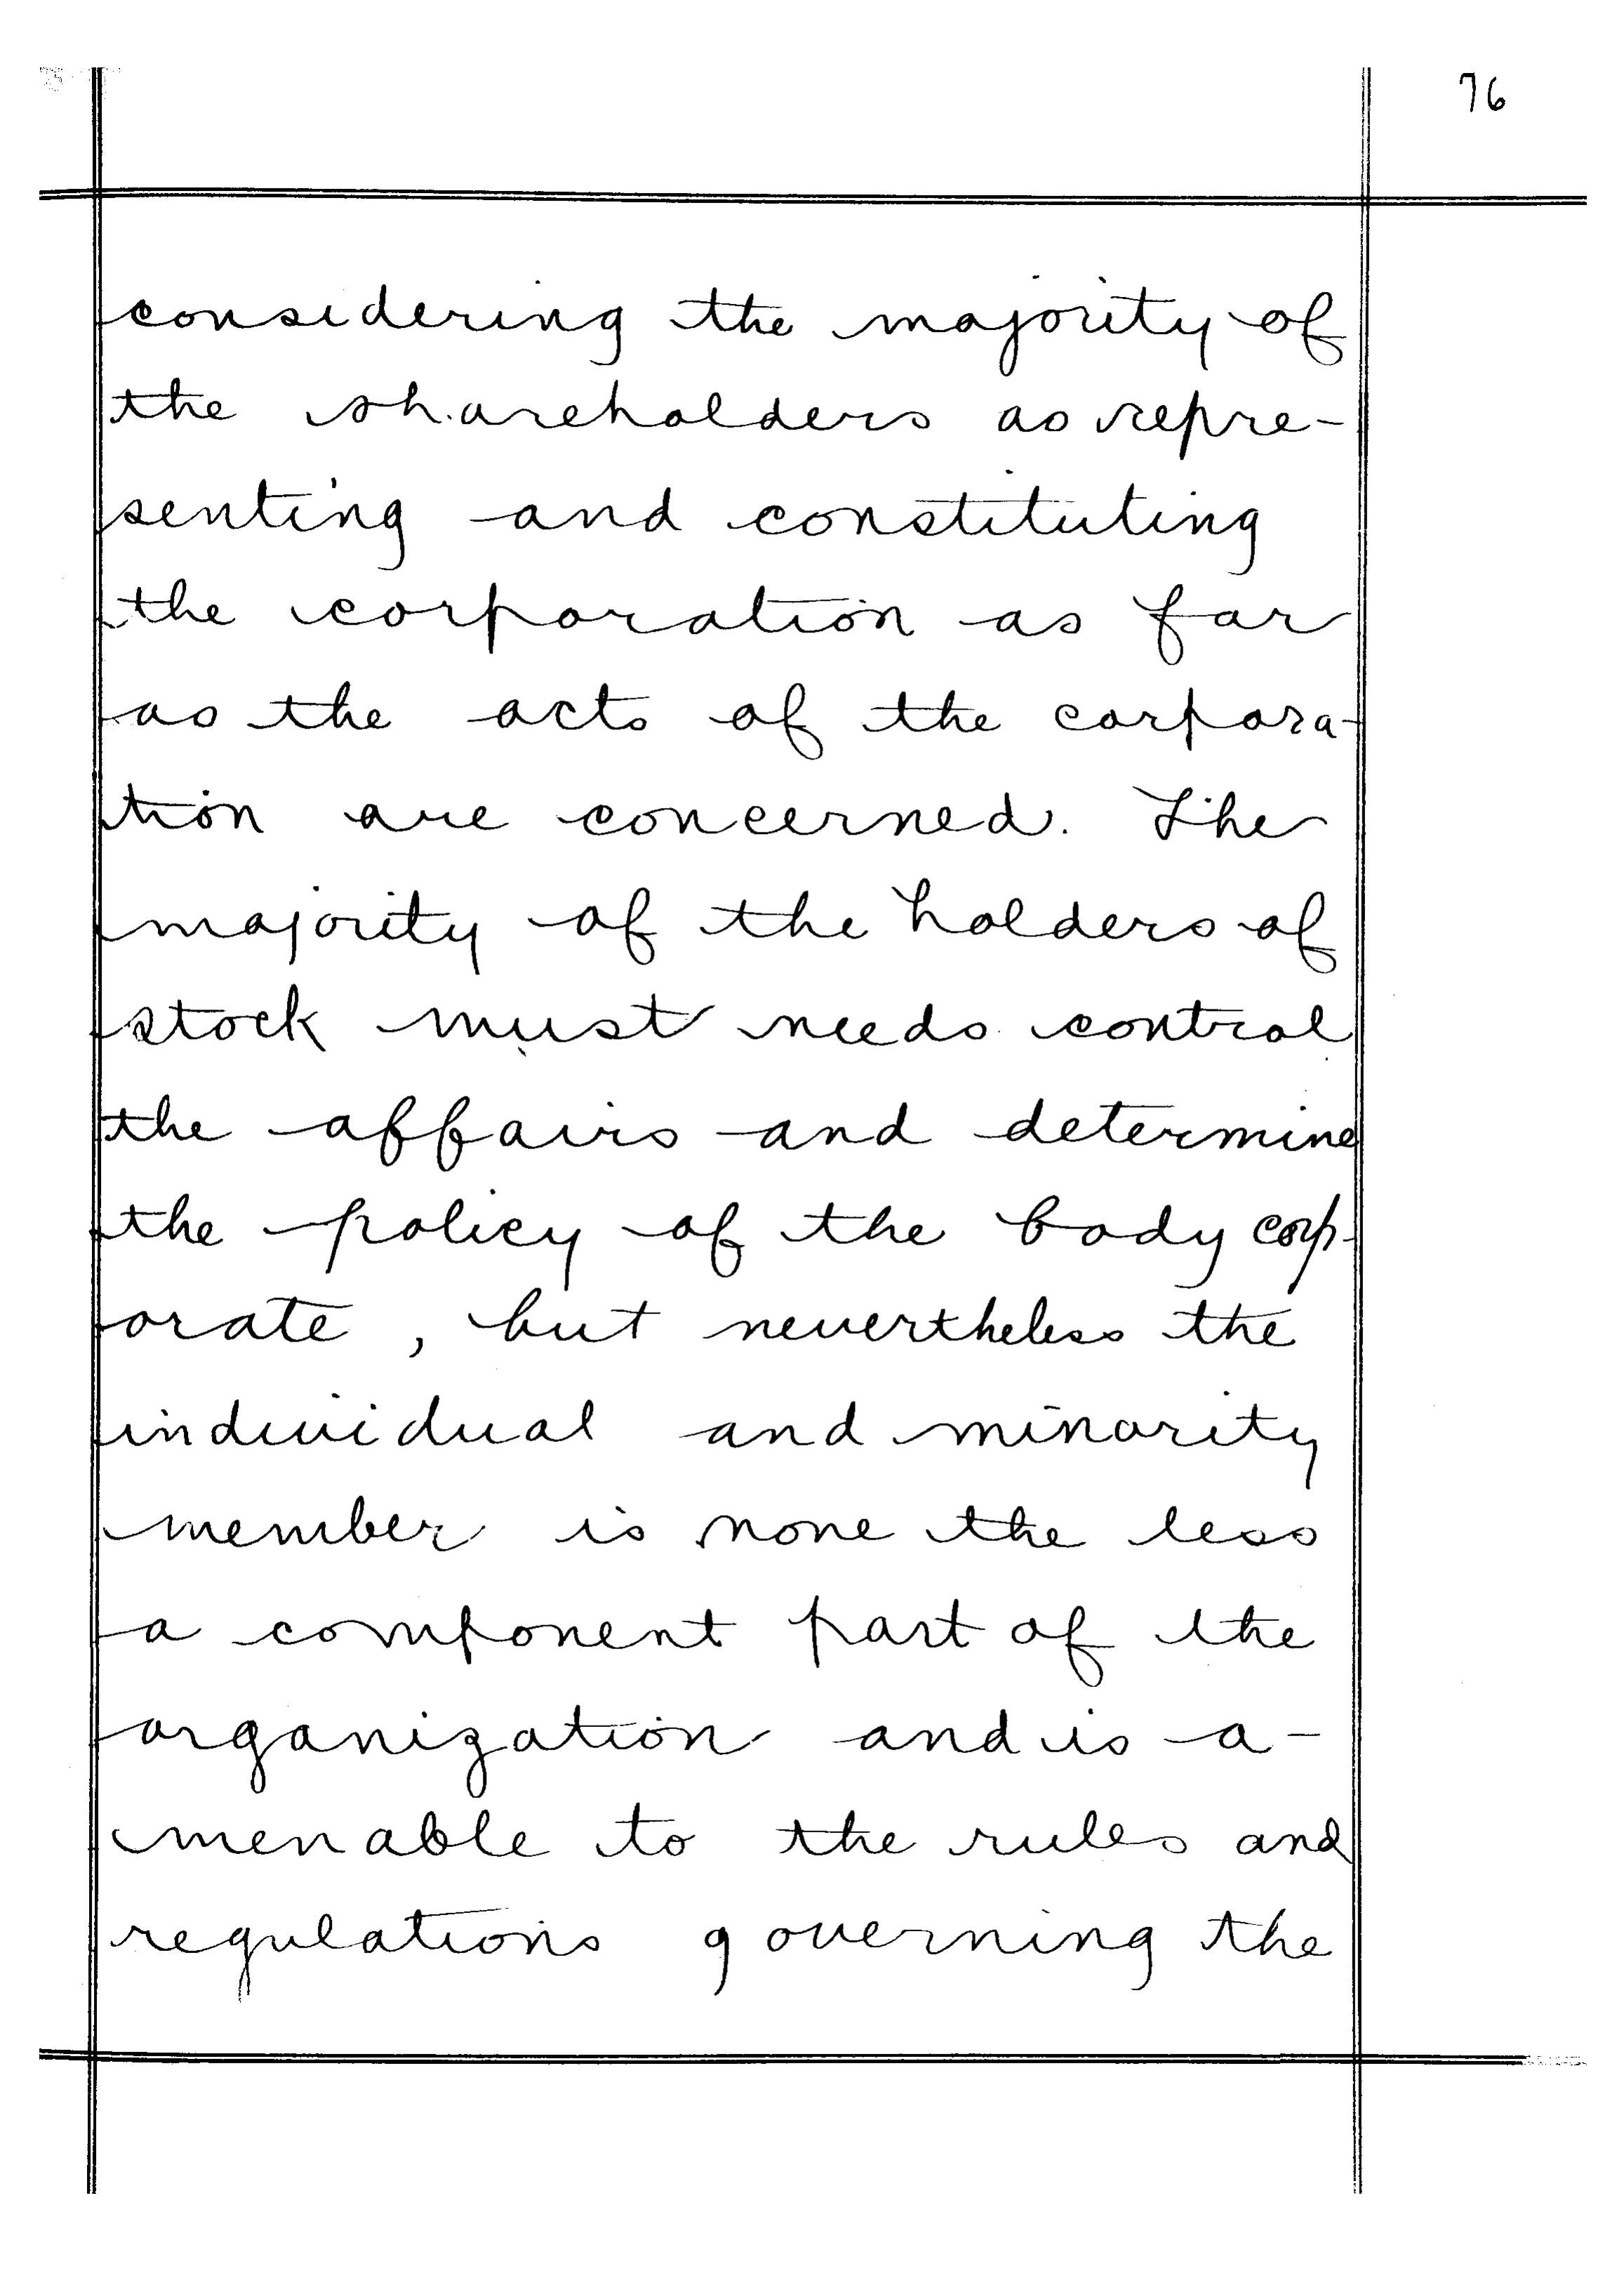 76
considering the majority of
the shareholders as repre-
senting and constituting
the corporation as far
as the acts of the corpora-
tion are concerned. The
majority of the holders of
stock must needs control
the affairs and determine
the policy of the body corp-
orate, but nevertheless the
individual and minority
member is none the less
a component part of the
organization and is a-
menable to the rules and
regulations governing the